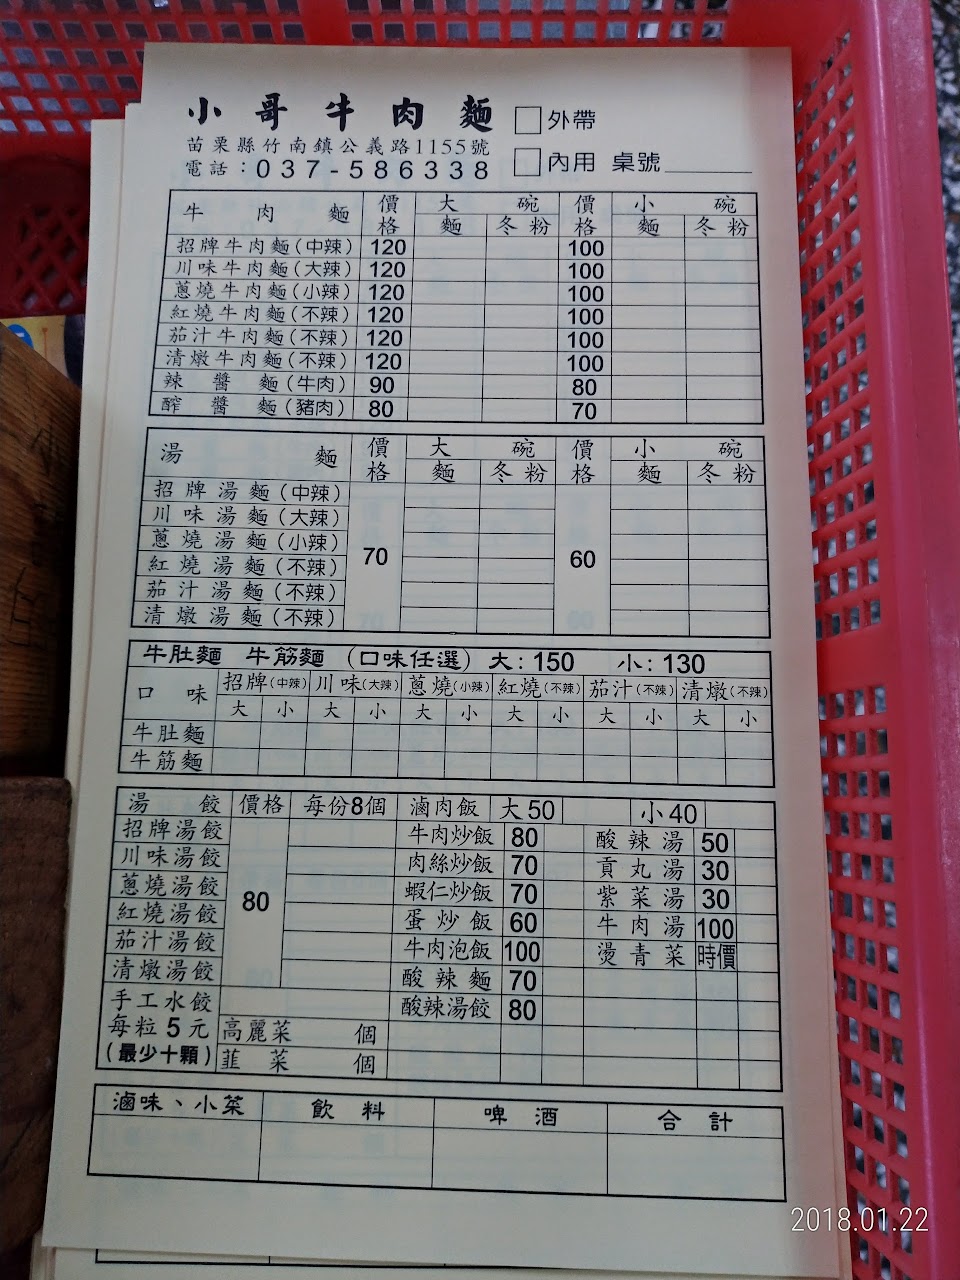 小哥牛肉麵
苗栗縣竹南鎮公義路1155號
電話：037-586338
□外帶
□內用 桌號
牛肉麵 價格 大碗 價格 小碗
麵 冬粉 麵 冬粉
招牌牛肉麵(中辣) 120 100
川味牛肉麵(大辣) 120 100
蔥燒牛肉麵(小辣) 120 100
紅燒牛肉麵(不辣) 120 100
茄汁牛肉麵(不辣) 120 100
清燉牛肉麵(不辣) 120 100
辣醬麵(牛肉) 90 80
醡醬麵(豬肉) 80 70
湯麵 價格 大碗 價格 小碗
麵 冬粉 麵 冬粉
招牌湯麵(中辣)
川味湯麵(大辣)
蔥燒湯麵(小辣)
70 60
紅燒湯麵(不辣)
茄汁湯麵(不辣)
清燉湯麵(不辣)
牛肚麵 牛筋麵 (口味任選) 大:150 小:130
口味 招牌(中辣) 川味(大辣) 蔥燒(小辣) 紅燒(不辣) 茄汁(不辣) 清燉(不辣)
大 小 大 小 大 小 大 小 大 小 大 小
牛肚麵
牛筋麵
湯餃 價格 每份8個 滷肉飯 大50 小40
招牌湯餃 牛肉炒飯 80 酸辣湯 50
川味湯餃 肉絲炒飯 70 貢丸湯 30
蔥燒湯餃 80 蝦仁炒飯 70 紫菜湯 30
紅燒湯餃 蛋炒飯 60 牛肉湯 100
茄汁湯餃 牛肉泡飯 100 燙青菜 時價
清燉湯餃 酸辣麵 70
手工水餃 酸辣湯餃 80
每粒5元 高麗菜 個
(最少十顆) 韮菜 個
滷味、小菜 飲料 啤酒 合計
2018.01.22